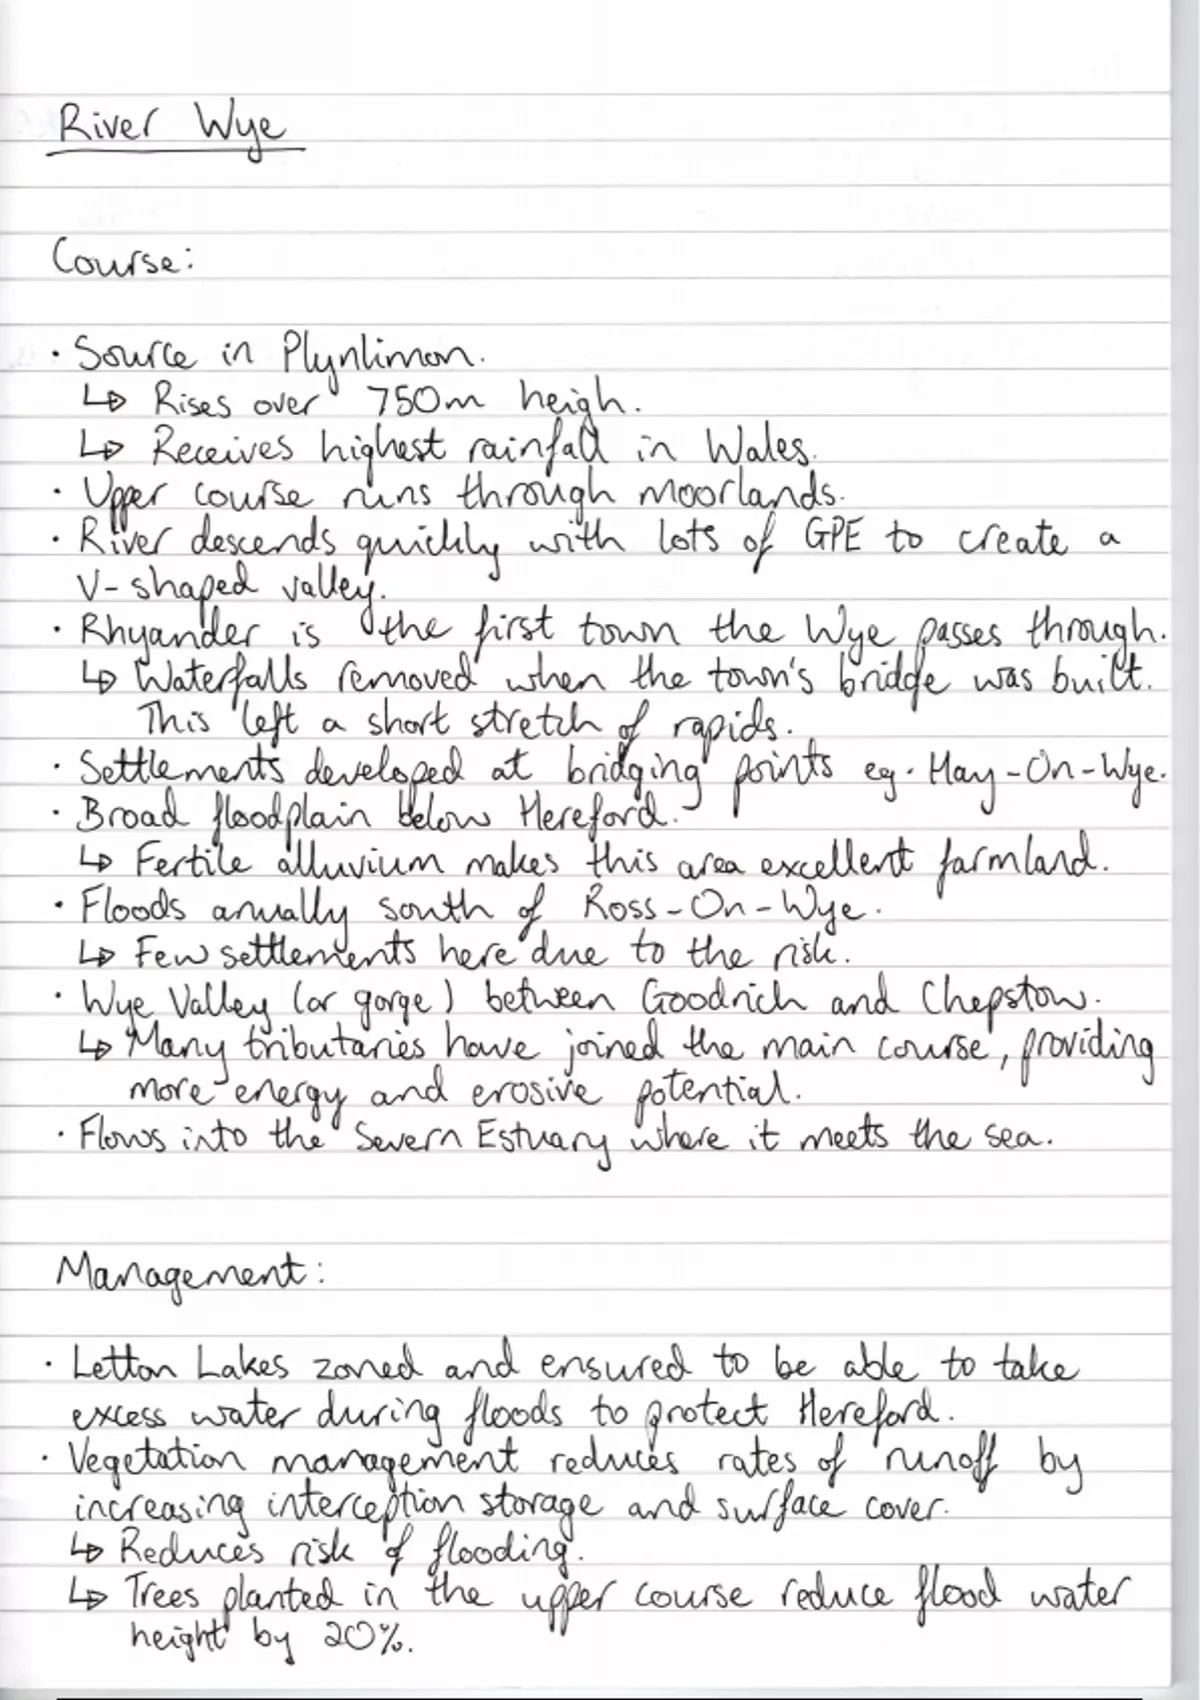 River Wye
Course:
· Source in Plynlimon.
↳ Rises over 750m heigh.
↳ Receives highest rainfall in Wales.
· Upper course runs through moorlands.
· River descends quickly with lots of GPE to create a
V-shaped valley.
· Rhyander is the first town the Wye passes through.
↳ Waterfalls removed when the town's bridge was built.
This left a short stretch of rapids.
· Settlements developed at bridging points eg. Hay-On-Wye.
· Broad floodplain below Hereford.
↳ Fertile alluvium makes this area excellent farmland.
· Floods anually south of Ross-On-Wye.
↳ Few settlements here due to the risk.
· Wye Valley (or gorge) between Goodrich and Chepstow.
↳ Many tributaries have joined the main course, providing
more energy and erosive potential.
· Flows into the Severn Estuary where it meets the sea.
Management:
· Letton Lakes zoned and ensured to be able to take
excess water during floods to protect Hereford.
· Vegetation management reduces rates of runoff by
increasing interception storage and surface cover.
↳ Reduces risk of flooding.
↳ Trees planted in the upper course reduce flood water
height by 20%.